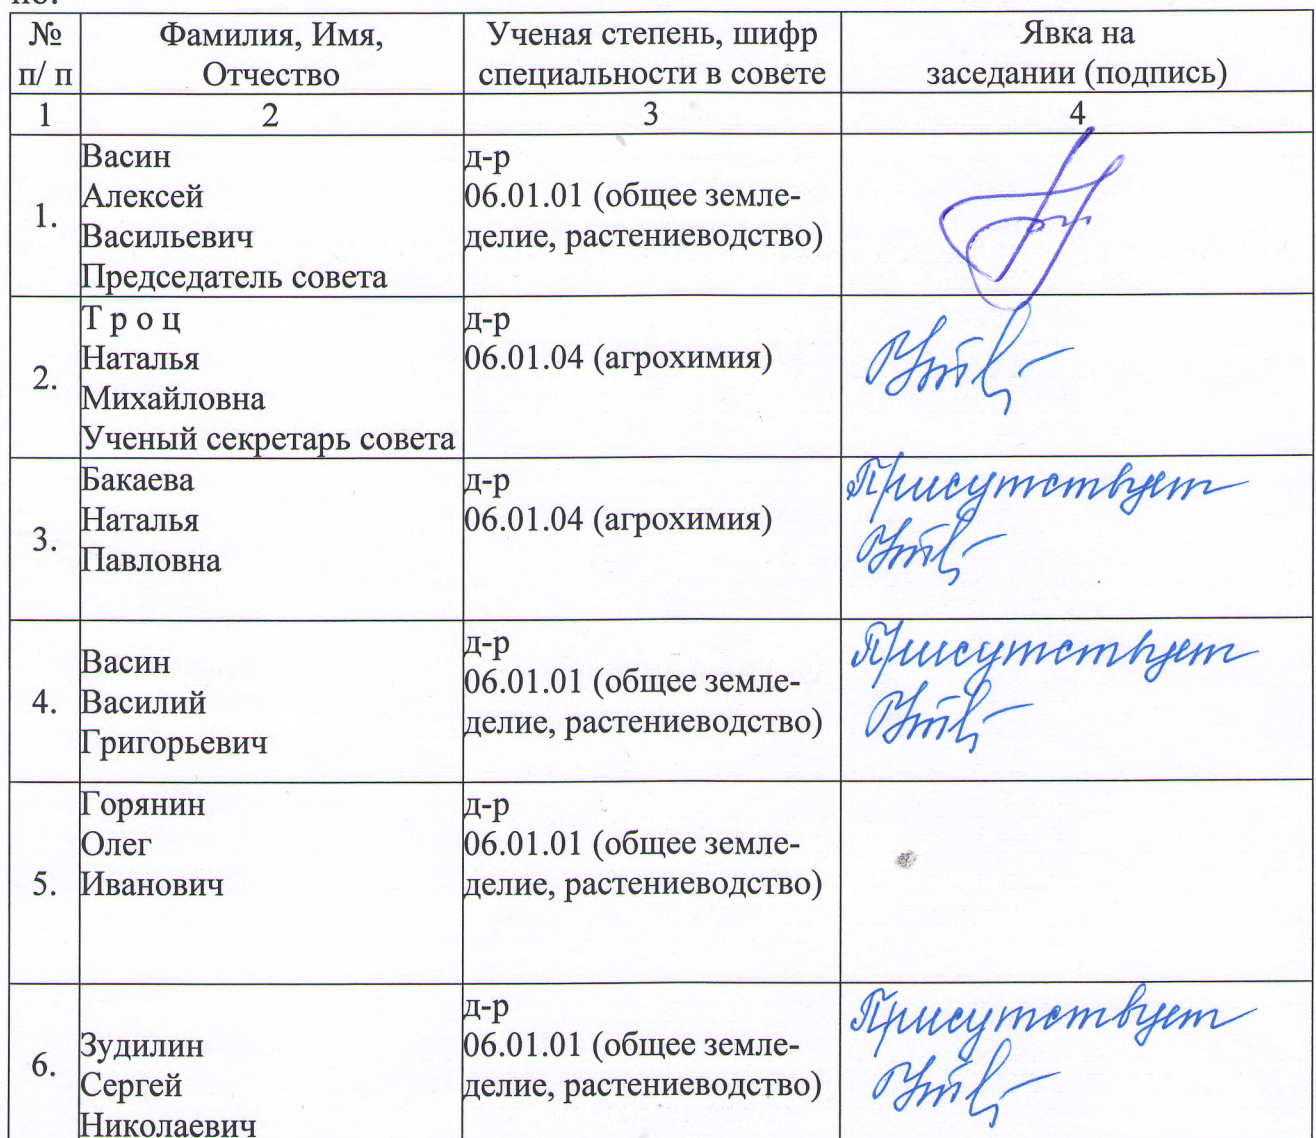 №
п/ п
Фамилия, Имя,
Отчество
Ученая степень, шифр
специальности в совете
Явка на
заседании (подпись)
1
2
3
4
1.
Васин
Алексей
Васильевич
Председатель совета
д-р
06.01.01 (общее земле-
делие, растениеводство)
2.
Т р о ц
Наталья
Михайловна
Ученый секретарь совета
д-р
06.01.04 (агрохимия)
3.
Бакаева
Наталья
Павловна
д-р
06.01.04 (агрохимия)
Присутствует
4.
Васин
Василий
Григорьевич
д-р
06.01.01 (общее земле-
делие, растениеводство)
Присутствует
5.
Горянин
Олег
Иванович
д-р
06.01.01 (общее земле-
делие, растениеводство)
6.
Зудилин
Сергей
Николаевич
д-р
06.01.01 (общее земле-
делие, растениеводство)
Присутствует